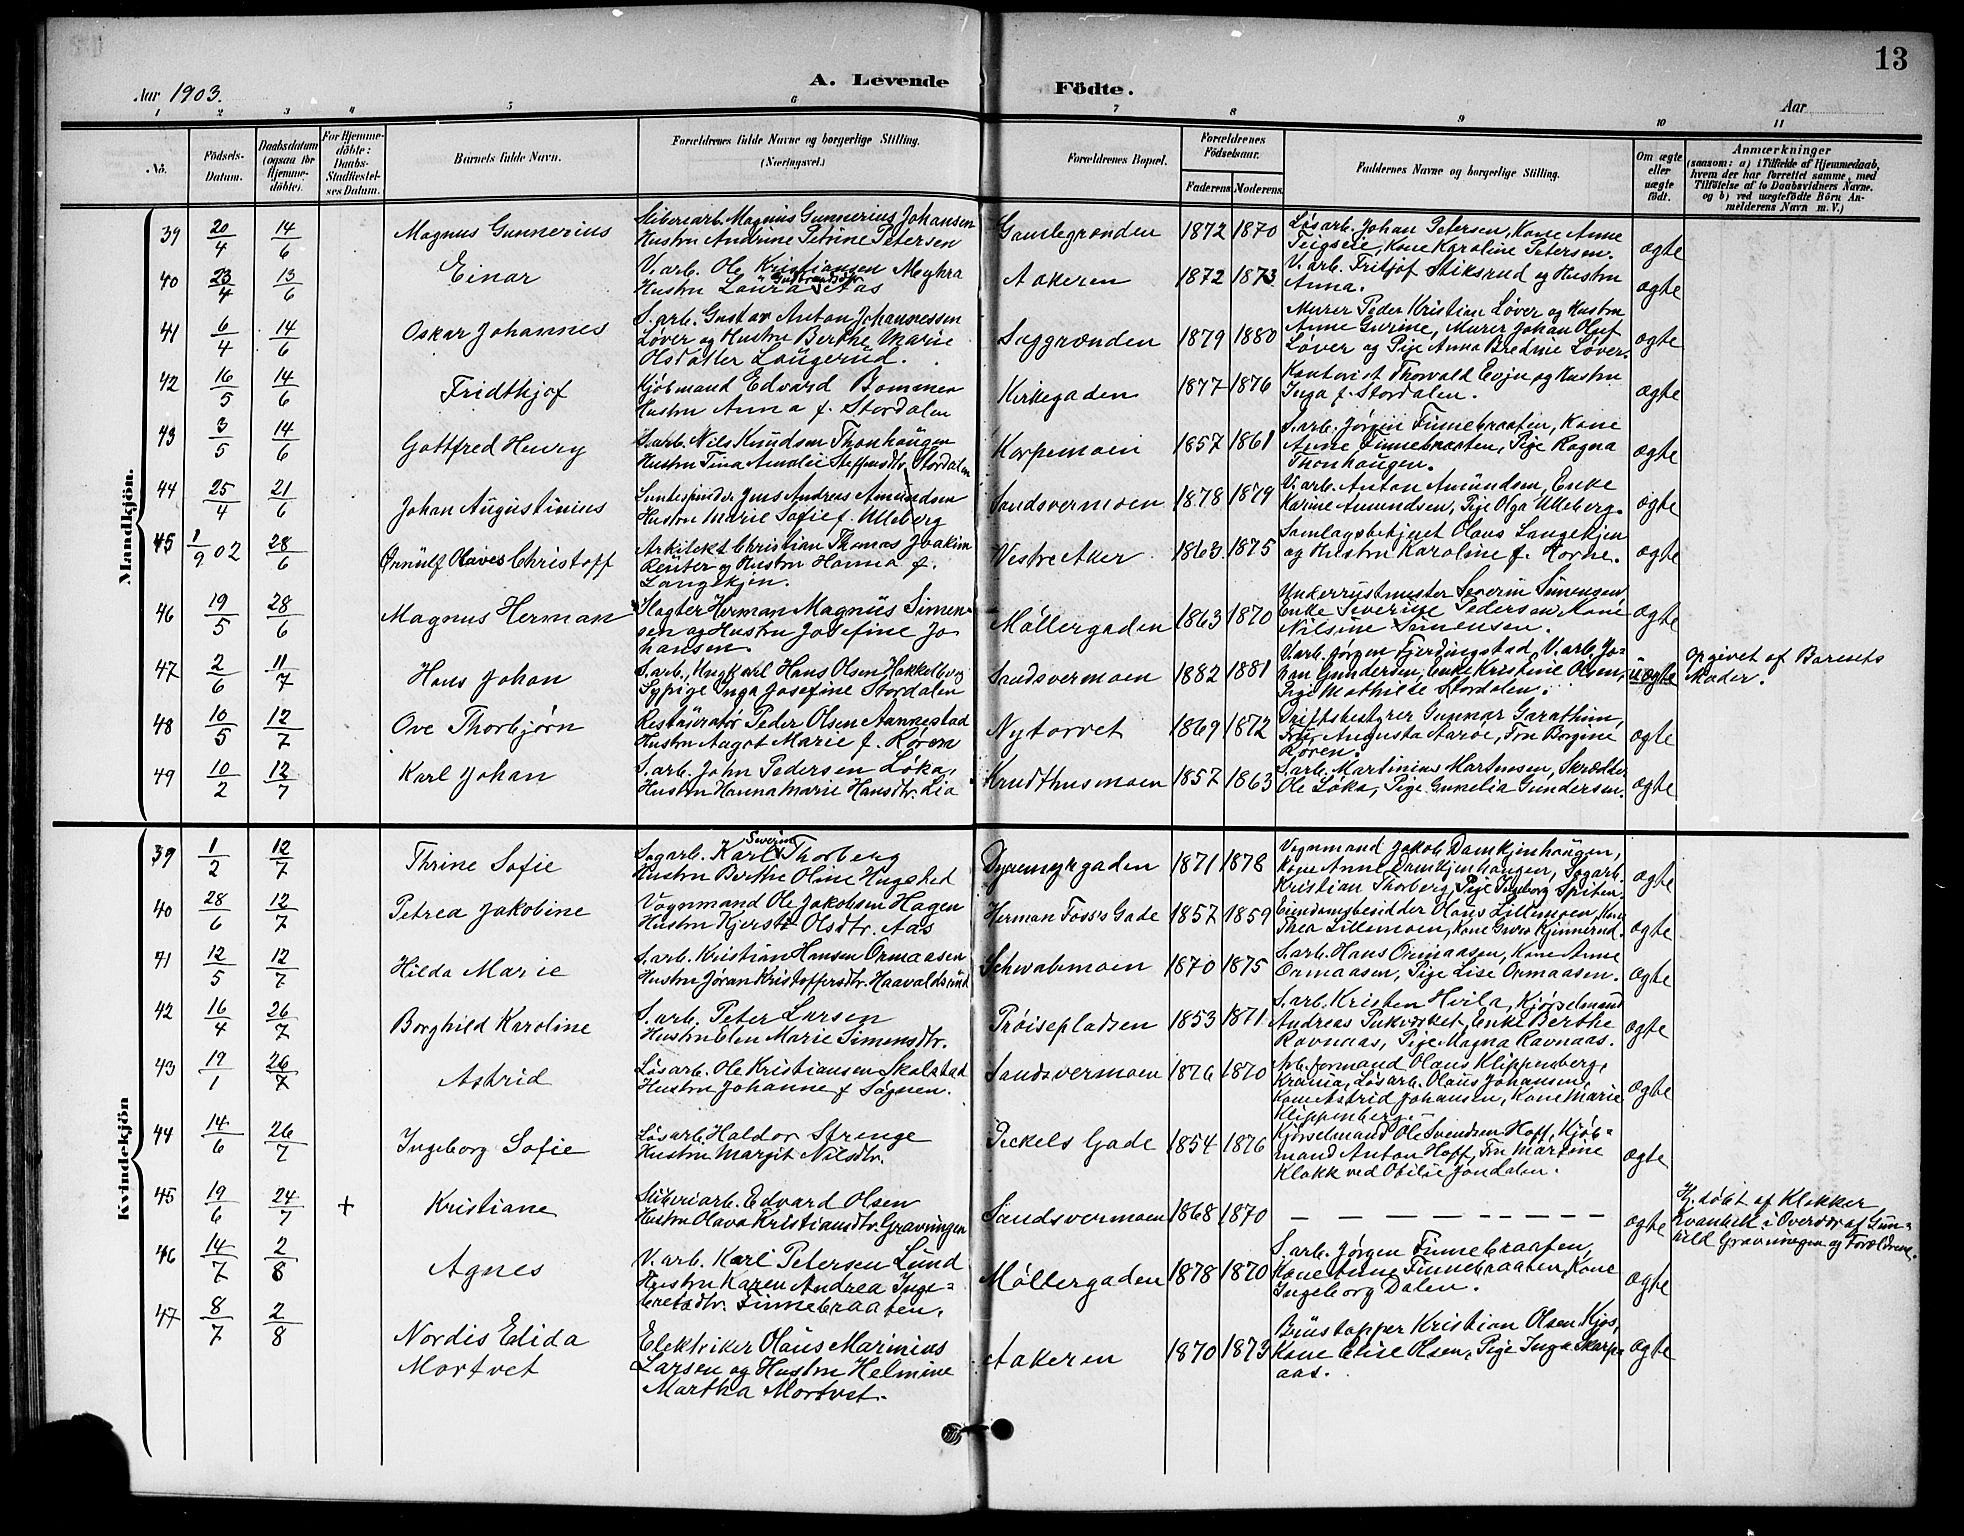 13
A. Levende Födte.
Aar 1903.
Aar
1 2 3 4 5 6 7 8 9 10 11
No.
Födsels-Datum.
Daabsdatum (ogsaa for Hjemmedöbte).
For Hjemmedöbte: Daabs-Stadfæstelses Datum.
Barnets fulde Navn.
Forældrenes fulde Navne og borgerlige Stilling. (Næringsvei.)
Forældrenes Bopæl.
Forældrenes Födselsaar.
Faderens Moderens
Faddernes Navne og borgerlige Stilling.
Om ægte eller uægte födt.
Anmærkninger
(saasom: a) i Tilfælde af Hjemmedaab, hvem der har forrettet samme, med Tilföielse af to Daabsvidners Navne, og b) ved uægtefödte Börn Anmelderens Navn m. V.)
Mandkjön.
39 20/4 14/6 Magnus Gunnerius
Magnus Gunnerius Johansen
Hustru Andrine Petrine Petersen
Gamlegrænden 1872 1870
Løsarb. Johan Petersen, Kone Anne
Teigseie, Kone Karoline Petersen.
ægte
40 23/4 13/6 Einar
V. arb. Ole Kristiansen Myhra
Hustru Laura Gudbrandsdtr. Aas
Aakeren 1872 1873
V. arb. Fritjof Stiksrud og Hustru
Anna.
ægte
41 6/4 14/6 Oskar Johannes
S. arb. Gustav Anton Johannessen
Løver og Hustru Berthe Marie
Olsdatter Laugerud.
Saggrænden 1879 1880
Murer Peder Kristian Løver og Hustru
Anne Gurine, Murer Johan Oluf
Løver og Pige Anna Bredine Løver.
ægte
42 16/5 14/6 Fridthjof
Kjøbmand Edvard Bommen
Hustru Anna f. Stordalen
Kirkegaden 1877 1876
Kontorist Thorvald Evju og Hustru
Inga f. Stordalen.
ægte
43 3/5 14/6 Gottfred Henry
S. arb. Nils Knudsen Thonhaugen
Hustru Tina Amalie Steffensdtr. Stordalen
Korpemoen 1857 1861
S. arb. Jørgen Finnebraaten, Kone
Anne Finnebraaten, Pige Ragna
Thonhaugen.
ægte
44 25/4 21/6 Johan Augustinius
Jens Andreas Amundsen
Hustru Marie Sofie f. Ulleberg
Sandsvermoen 1878 1879
V. arb. Anton Amundsen, Enke
Karine Amundsen, Pige Olga Ulleberg.
ægte
45 1/9 02 28/6 Ørnulf Olaves Christoff
Arkitekt Christian Thomas Joakim
Reuter og Hustru Hanna f.
Langekjen.
Vestre Aker 1863 1875
Samlagsbetjent Olaus Langekjen
og Hustru Karoline f. Horne.
ægte
46 19/5 28/6 Magnus Herman
Slagter Herman Magnus Simen-
sen og Hustru Josefine Jo
hansen.
Møllergaden 1863 1870
Underrustmester Severin Simensen
Enke Severine Pedersen, Kone
Nilsine Simensen.
ægte
47 2/6 11/7 Hans Johan
S. arb., Ungkarl Hans Olsen Hakkelberg
Sypige Inga Josefine Stordalen
Sandsvermoen 1882 1881
V. arb. Jørgen Fjerdingstad, V. arb. Jo-
han Gundersen, Enke Kristine Olsen,
Pige Mathilde Stordalen.
uægte
Opgivet af Barnets
Moder.
48 10/5 12/7 Ove Thorbjørn
Restauratør Peder Olsen Aannestad
Hustru Aagot Marie f. Røren
Nytorvet 1869 1872
Driftsbestyrer Gunnar Garathun,
Fru Augusta Aarøe, Fru Borgine
Røren.
ægte
49 10/2 12/7 Karl Johan
S. arb. John Pedersen Løka,
Hustru Hanna Marie Hansdtr. Lia
Krudthusmoen 1857 1863
S. arb. Martinius Martinsen, Skrædder
Ole Løka, Pige Gunelia Gundersen.
ægte
Kvindekjön
39 1/2 12/7 Thrine Sofie
Sagarb. Karl Severin Thorberg
Hustru Berthe Oline Hugsted
Dyremyrgaden 1871 1878
Vognmand Jakob Damkjenhaugen,
Kone Anne Damkjenhaugen, Sagarb.
Kristian Thorberg, Pige Ingeborg Spiten.
ægte
40 28/6 12/7 Petrea Jakobine
Vognmand Ole Jakobsen Hagen
Hustru Kjersti Olsdtr. Aas
Herman Foss's Gade 1857 1859
Eiendomsbesidder Olaus Lillemoen, Kone
Thea Lillemoen, Kone Guro Kjinnerud.
ægte
41 12/5 12/7 Hilda Marie
S. arb. Kristian Hansen Ormaasen
Hustru Jøran Kristoffersdtr. Haavaldsrud
Schwabsmoen 1870 1875
S. arb. Hans Ormaasen, Kone Anne
Ormaasen, Pige Lise Ormaasen.
ægte
42 16/4 26/7 Borghild Karoline
S. arb. Peter Larsen
Hustru Elen Marie Simensdtr.
Prøisepladsen 1853 1871
S. arb. Kristen Hvila, Kjørselmand
Andreas Pukværket, Enke Berthe
Ravnaas, Pige Magna Ravnaas.
ægte
43 19/1 26/7 Astrid
Løsarb. Ole Kristiansen Skolstad
Hustru Johanne f. Søgnen.
Sandsvermoen 1876 1870
Arb. formand Olaus Klippenberg,
Krania, Løsarb. Olaus Johansen,
Kone Astrid Johansen, Kone Marie
Klippenberg.
ægte
44 14/6 26/7 Ingeborg Sofie
Løsarb. Haldor Strenge
Hustru Margit Nilsdtr.
Peckels Gade 1854 1876
Kjørselmand Ole Svendsen Hoff, Kjøb-
mand Anton Hoff, Fru Martine
Klokk ved Otilie Jondalen.
ægte
45 19/6 24/7 + Kristiane
Edvard Olsen
Hustru Olava Kristiansdtr. Gravningen
Sandsvermoen 1868 1870
— — — — — — — —
ægte
Hj. døbt af Klokker
i Overvær af Gun-
hild Gravningen og Forældrene.
46 14/7 2/8 Agnes
V. arb. Karl Petersen Lund
Hustru Karen Andrea Inge-
bretsdtr. Finnebraaten.
Møllergaden 1878 1870
S. arb. Jørgen Finnebraaten,
Kone Anne Finnebraaten, Kone
Ingeborg Dalen.
ægte
47 8/7 2/8 Nordis Elida
Mortvet
Elektriker Olaus Marinius
Larsen og Hustru Helmine
Martha Mortvet.
Aakeren 1870 1873
Brustapper Kristian Olsen Kjos,
Kone Elise Olsen, Pige Inga Skarpa
aas.
ægte